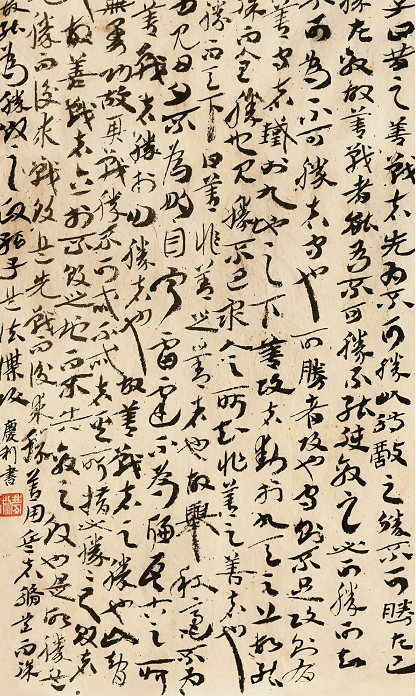 子曰昔之善戰者先為不可勝以待敵之可勝不可勝在己
勝在敵故善戰者能為不可勝不能使敵之必可勝
不可為不可勝者守也可勝者攻也守則不足攻則有
善守者藏於九地之下善攻者動於九天之上故能
保而全勝也見勝不過眾人之所知非善之善者也
勝而天下曰善非善之善者也故舉秋毫不為
力見日月不為明目聞雷霆不為聰耳古之所
善戰者勝於易勝者也故善戰者之勝也無智
無勇功故其戰勝不忒不忒者其所措必勝勝已敗者
故善戰者立於不敗之地而不失敵之敗也是故勝兵
勝而後求戰敗兵先戰而後求勝善用兵者脩道而保
故能為勝敗之政孫子兵法謀攻
慶利書